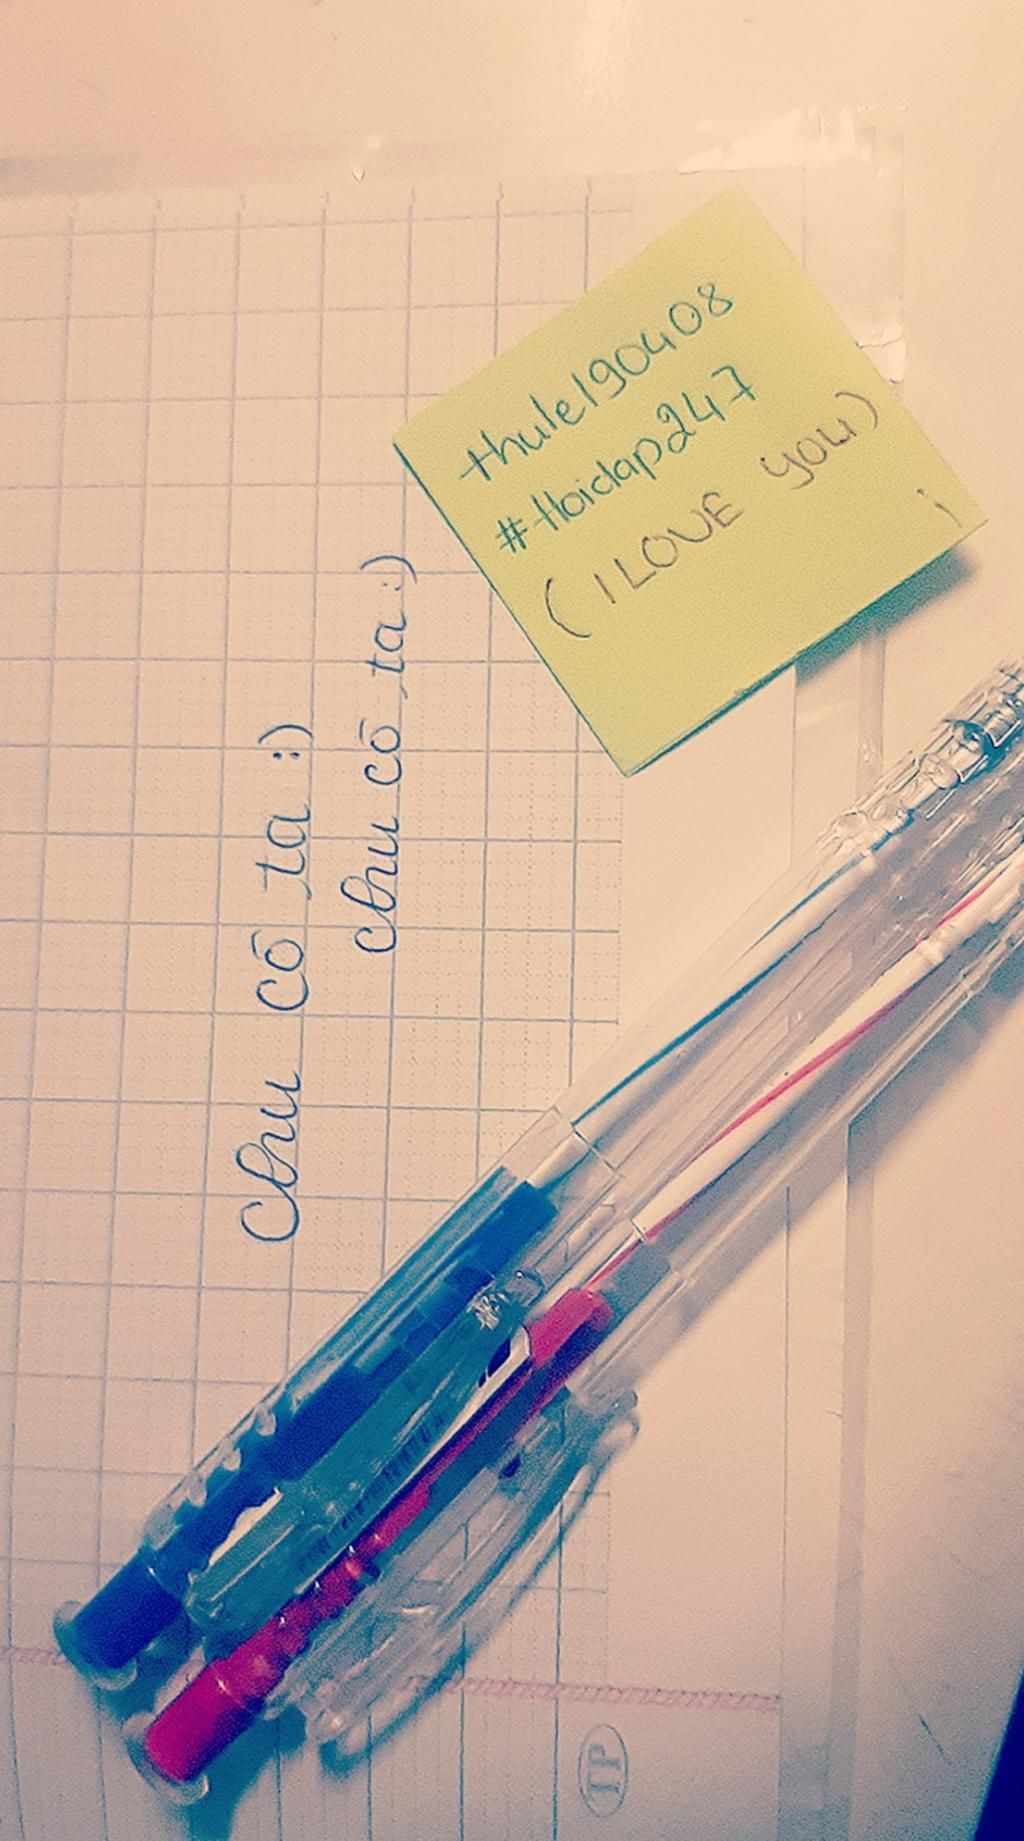 thule190408
#Hoidap247
(I LOVE you)
Chu cô ta :)
chu cô ta :)
TP